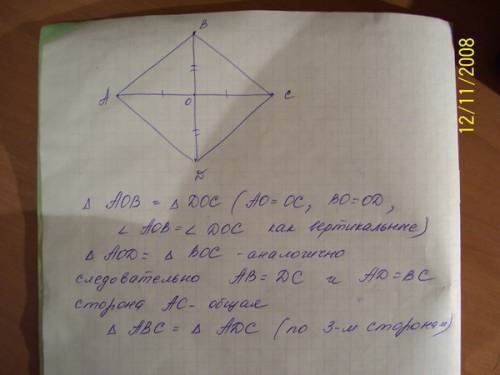 B
A
O
C
D
Δ AOB = Δ DOC (AO=OC, BO=OD,
∠ AOB=∠ DOC как вертикальные)
Δ AOD= Δ BOC - аналогично
следовательно AB=DC и AD=BC
сторона AC- общая
Δ ABC = Δ ADC (по 3-м сторонам)
12/11/2008